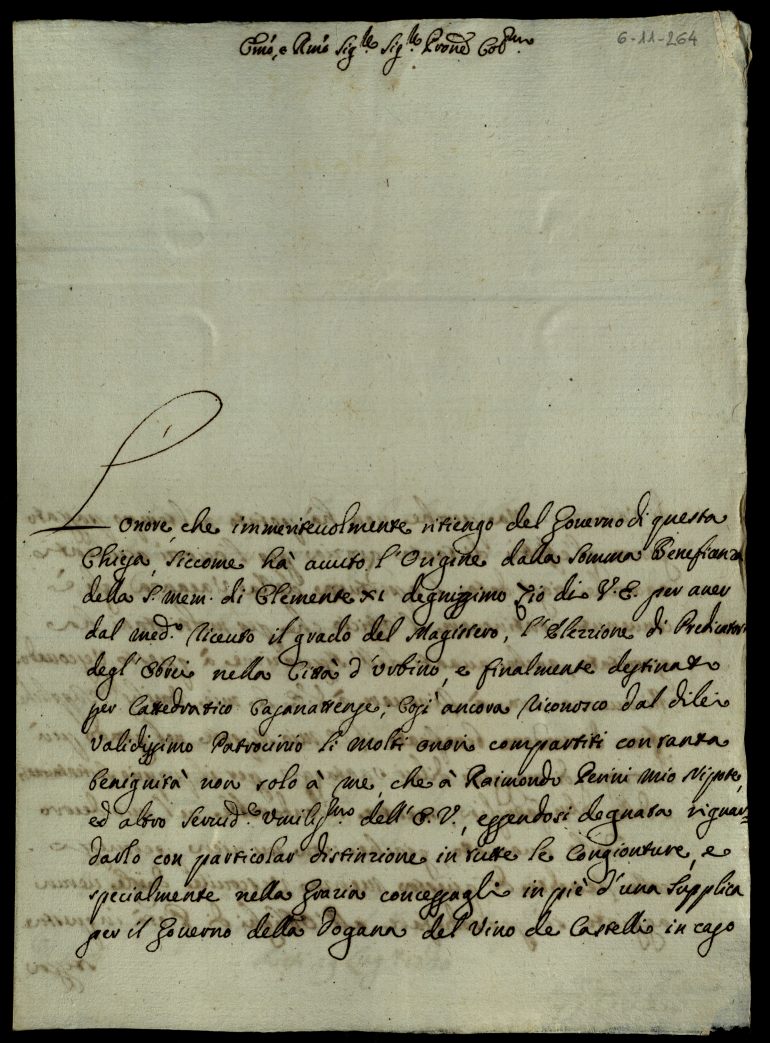 Emo, e Rmo Sigre Sigre Prone Colmo
6-11-264
L'onore, che immeritevolmente ritiengo del Governo di questa
Chiesa, siccome hà avuto l'Origine dalla somma Beneficenza
della S. mem. di Clemente XI degnissimo Zio di V. E. per aver
dal med.o ricevuto il grado del Magistero, l'Elezzione di Predicatore
degl'Ebrei nella Città d'Urbino, e finalmente destinato
per Cattedratico; Così ancora riconosco dal di lei
validissimo Patrocinio li molti onori compartiti con tanta
benignità non solo à me, che à Raimondo Perini mio Nipote,
ed altro Servid.e Umiliss.mo dell'E. V., essendosi degnata riguar=
darlo con particolar distinzione in tutte le Congionture, e
specialmente nella Grazia concessagli in piè d'una Supplica
per il Governo della Dogana del Vino de Castelli in caso